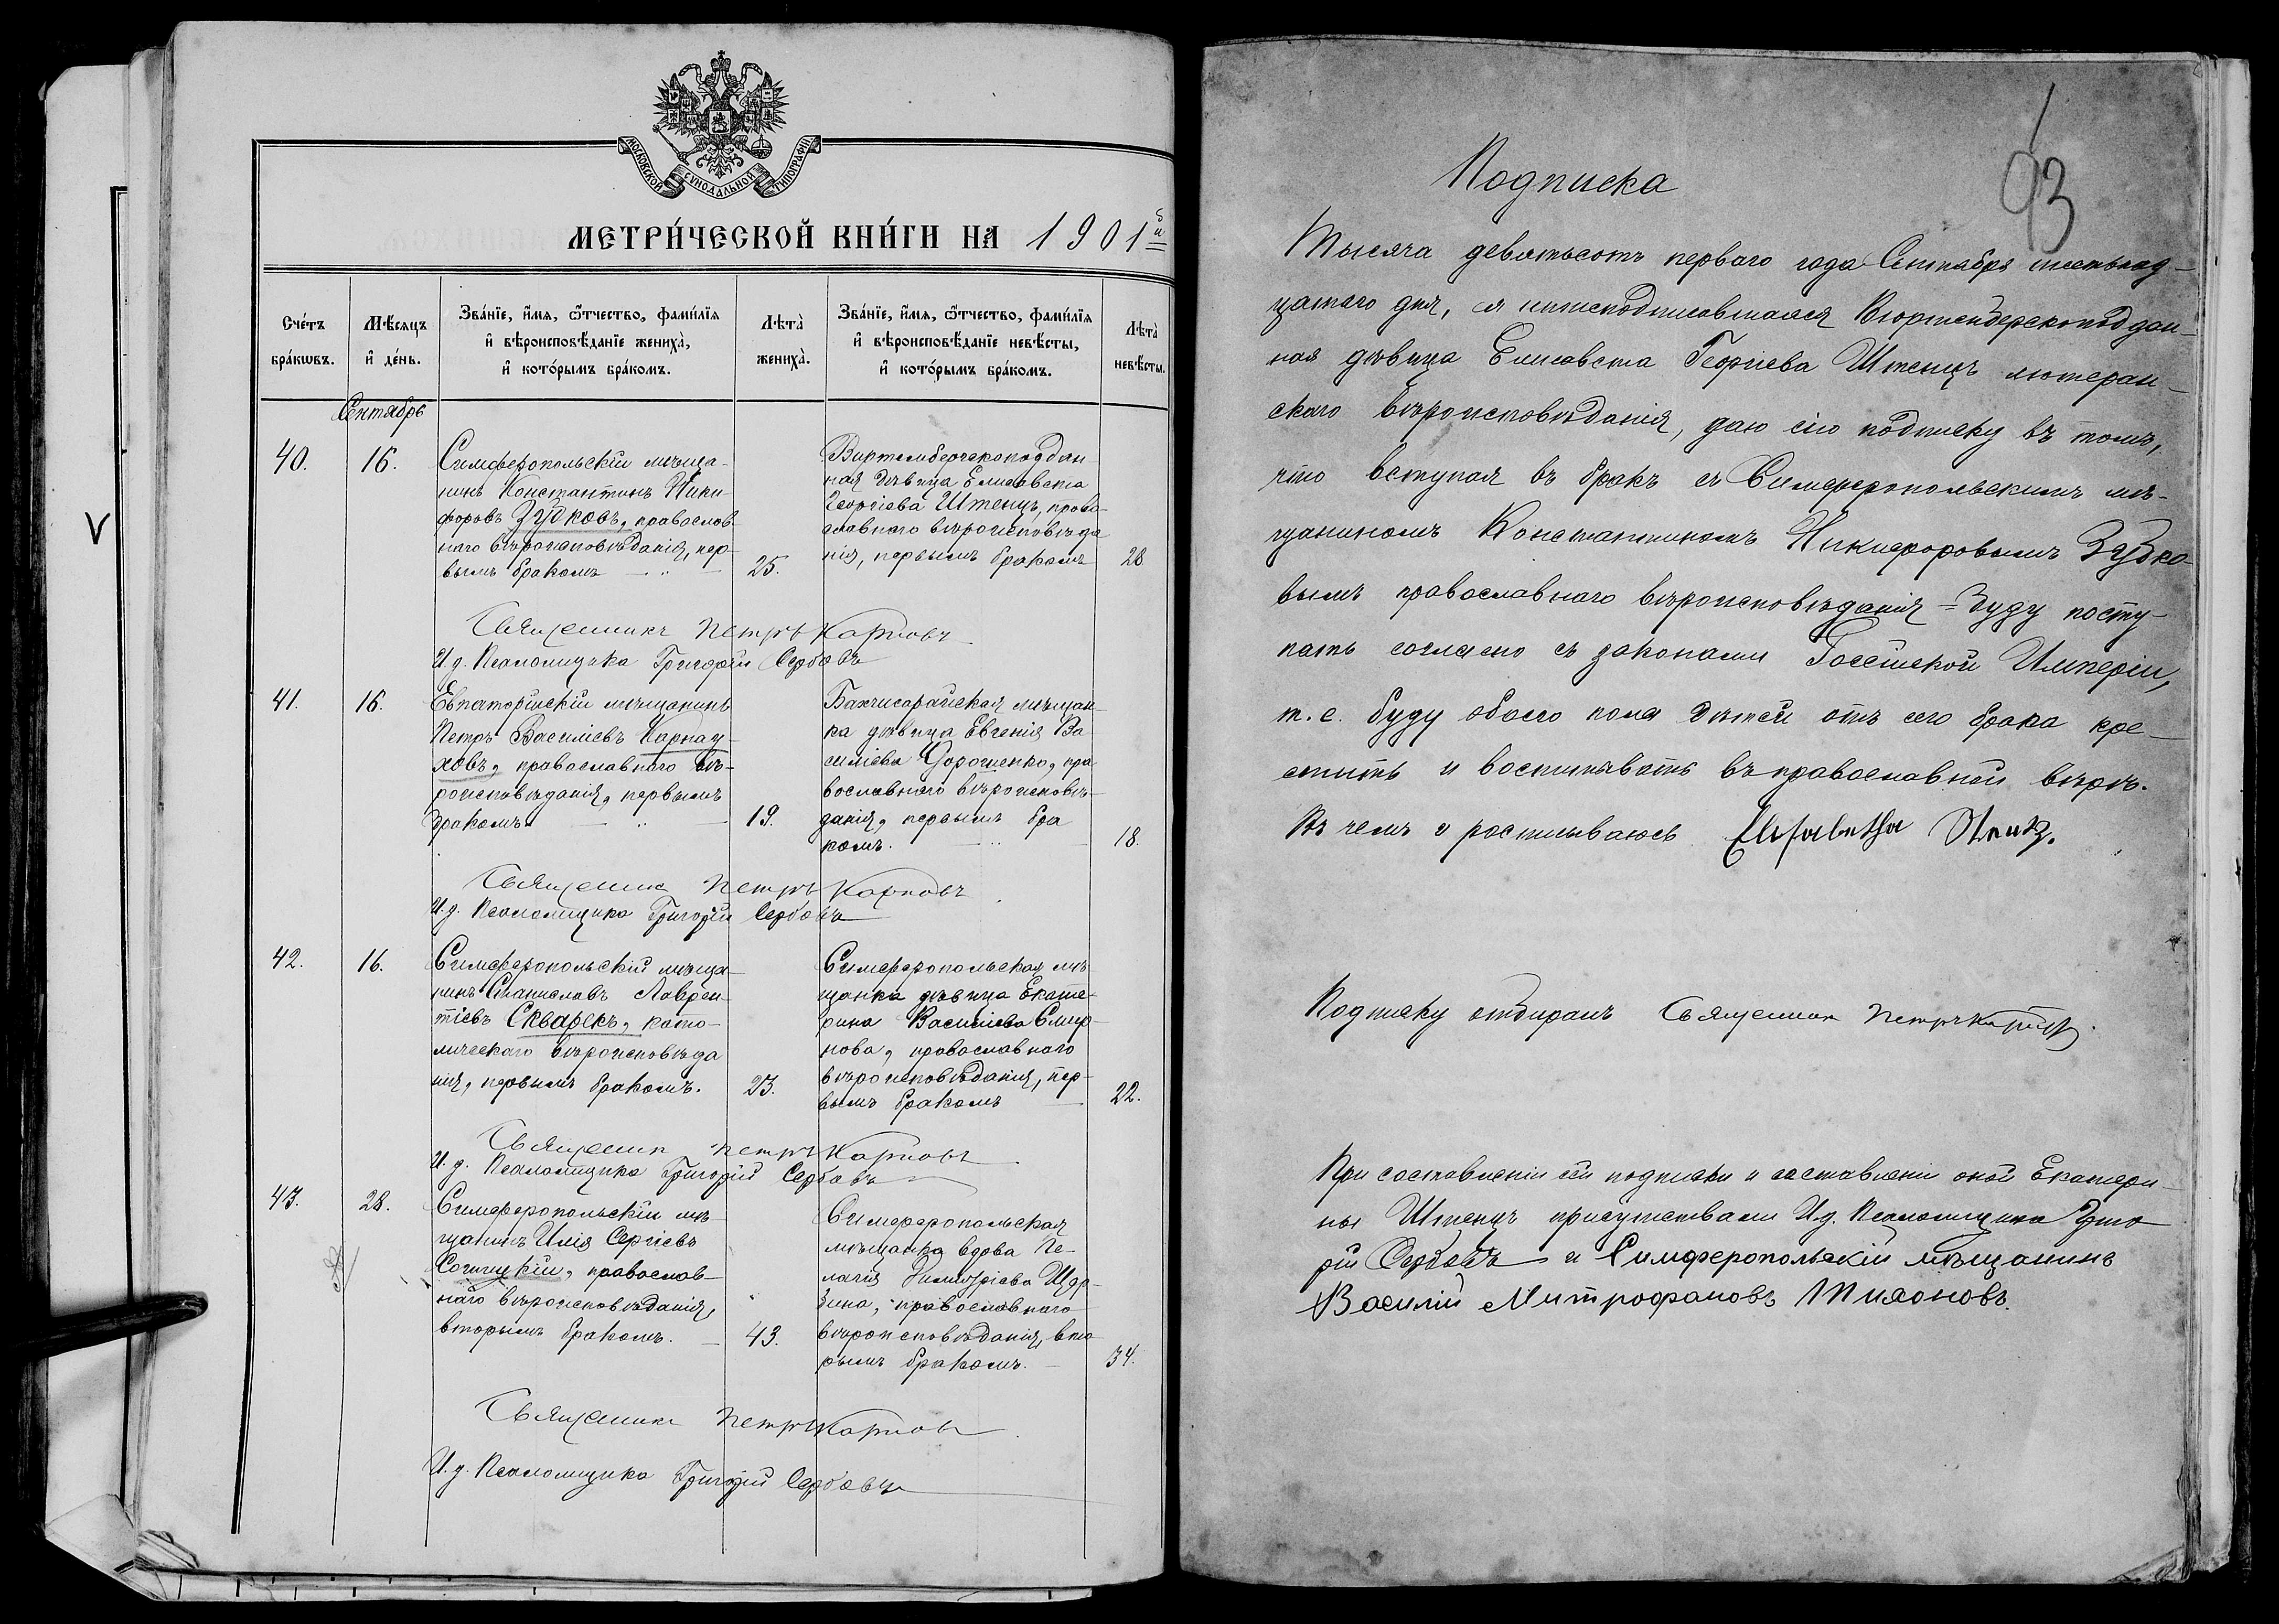 МОСКОВСКОЙ СѴНОДАЛЬНОЙ ТИПОГРАФІИ
МЕТРИ́ЧЕСКОЙ КНИ́ГИ НА 1901й
Сче́тъ бра́кωвъ.
Мѣсяцъ и҆ де́нь.
Зва́нїе, и҆́мѧ, ѻ҆́тчество, фами́лїѧ и҆ вѣроисповѣ́данїе жениха̀, и҆ кото́рымъ бра́комъ.
Лѣта̀ жениха̀.
Зва́нїе, и҆́мѧ, ѻ҆́тчество, фами́лїѧ и҆ вѣроисповѣ́данїе невѣ́сты, и҆ кото́рымъ бра́комъ.
Лѣта̀ невѣ́сты.
Сентябрь
40.
16.
Симферопольскій мѣща-
нинъ Константинъ Ники-
форовъ Зубковъ, православ-
наго вѣроисповѣданія, пер-
вымъ бракомъ
25.
Виртембергскоподдан-
ная дѣвица Елисавета
Георгіева Штенцъ, право-
славнаго вѣроисповѣда
нія, первымъ бракомъ
28
Священникъ Петръ Карповъ
И. д. Псаломщика Григорій Сербовъ
41.
16.
Евпаторійскій мѣщанинъ
Петръ Василіевъ Карнау-
ховъ, православнаго вѣ-
роисповѣданія, первымъ
бракомъ.
19.
Бахчисарайская мѣщан-
ка дѣвица Евгенія Ва-
силіева Дорошенко, пра
вославнаго вѣроисповѣ-
данія, первымъ бра
комъ.
18.
Священникъ Петръ Карповъ
И. д. Псаломщика Григорій Сербовъ
42.
16.
Симферопольскій мѣща-
нинъ Станиславъ Лаврен-
тіевъ Скварекъ, като-
лическаго вѣроисповѣда
нія, первымъ бракомъ.
23.
Симферопольская мѣ-
щанка дѣвица Екате-
рина Василіева Смир-
нова, православнаго
вѣроисповѣданія, пер-
вымъ бракомъ
22.
Священникъ Петръ Карповъ
И. д. Псаломщика Григорій Сербовъ
43.
28.
Симферопольскій мѣ-
щанинъ Илія Сергіевъ
православ-
наго вѣроисповѣданія,
вторымъ бракомъ.
43.
Симферопольская
мѣщанка вдова Пе-
лагія Димитріева
православнаго
вѣроисповѣданія, вто
рымъ бракомъ.
34.
Священникъ Петръ Карповъ
И. д. Псаломщика Григорій Сербовъ
V
93
Подписка
Тысяча девятьсотъ перваго года Сентября шестнад-
цатаго дня, я нижеподписавшаяся Вюртембергскоподдан-
ная дѣвица Елисавета Георгіева Штенцъ лютеран-
скаго вѣроисповѣданія, даю сію подписку въ томъ,
что вступая въ бракъ съ Симферопольскимъ мѣ-
щаниномъ Константиномъ Никифоровымъ Зубко-
вымъ православнаго вѣроисповѣданія = буду посту-
пать согласно съ законами Россійской Имперіи,
т. е. буду обоего пола дѣтей отъ сего брака кре-
стить и воспитывать въ православной вѣрѣ.
Въ чемъ и росписываюсь Elisabetha Stenz.
Подписку отбиралъ Священникъ Петръ Карповъ.
При составленіи сей подписки и составленіи оной Екатери-
ны Штенцъ присутствовали И. д. Псаломщика Григо
рій Сербовъ и Симферопольскій мѣщанинъ
Василій Митрофановъ Тихоновъ.